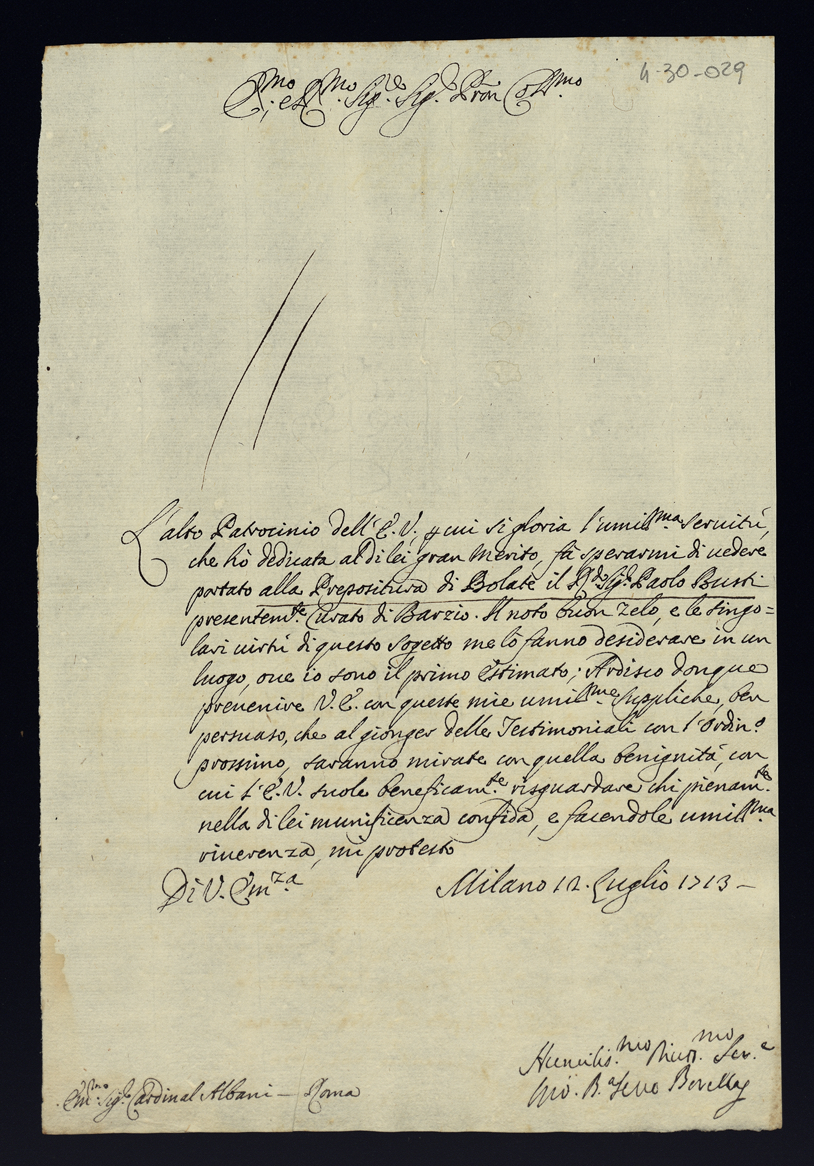 4-30-029
E.mo, e R.mo Sig.r Sig.r Pron Coll.mo
L'alto Patrocinio dell'E.V. p cui si gloria l'umill.ma servitù,
che hò dedicata al di lei gran Merito, fà sperarmi di vedere
portato alla Prepositura di Bolate il R.do Sig.r Paolo Busti
presentem.te Curato di Barzio. Il noto buon Zelo, e le singo=
lari virtù di questo sogetto me lo fanno desiderare in un
luogo, ove io sono il primo Estimato; Ardisco donque
prevenire V.E. con queste mie umill.me suppliche, ben
persuaso, che al gionger delle Testimoniali con l'Ordin.o
prossimo, saranno mirate con quella benignità, con
cui l'E.V. suole beneficam.te risguardare chi pienam.te
nella di lei munificenza confida, e facendole umill.ma
riverenza, mi protesto
Di V. Em.za Milano 12. Luglio 1713 –
Humilis.mo Ser.e
Gio. B.a
Em.mo Sig.r Cardinal Albani – Roma